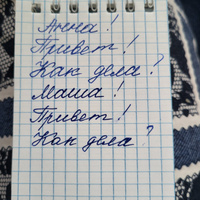 Анна!
Привет!
Как дела?
Маша!
Привет!
Как дела?